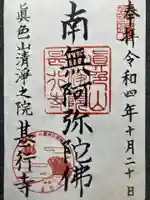 奉拝 令和四年十月二十日
南無阿弥陀佛
眞色山清浄之院 甚行寺
眞色山